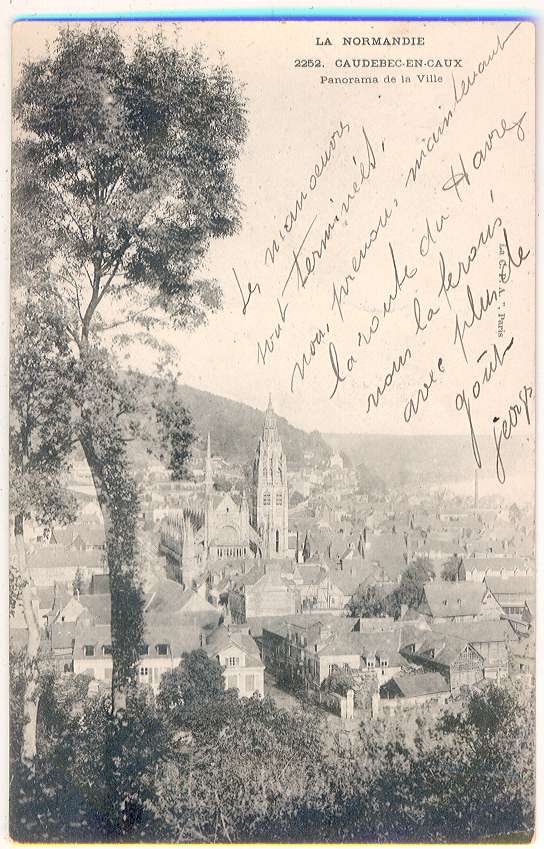 LA NORMANDIE
2252. CAUDEBEC-EN-CAUX
Panorama de la Ville
Les manoeuvres
sont terminées,
nous prenons maintenant
la route du Havre,
nous la ferons
avec plus de
goût
Georges
La C. P. A. - Paris